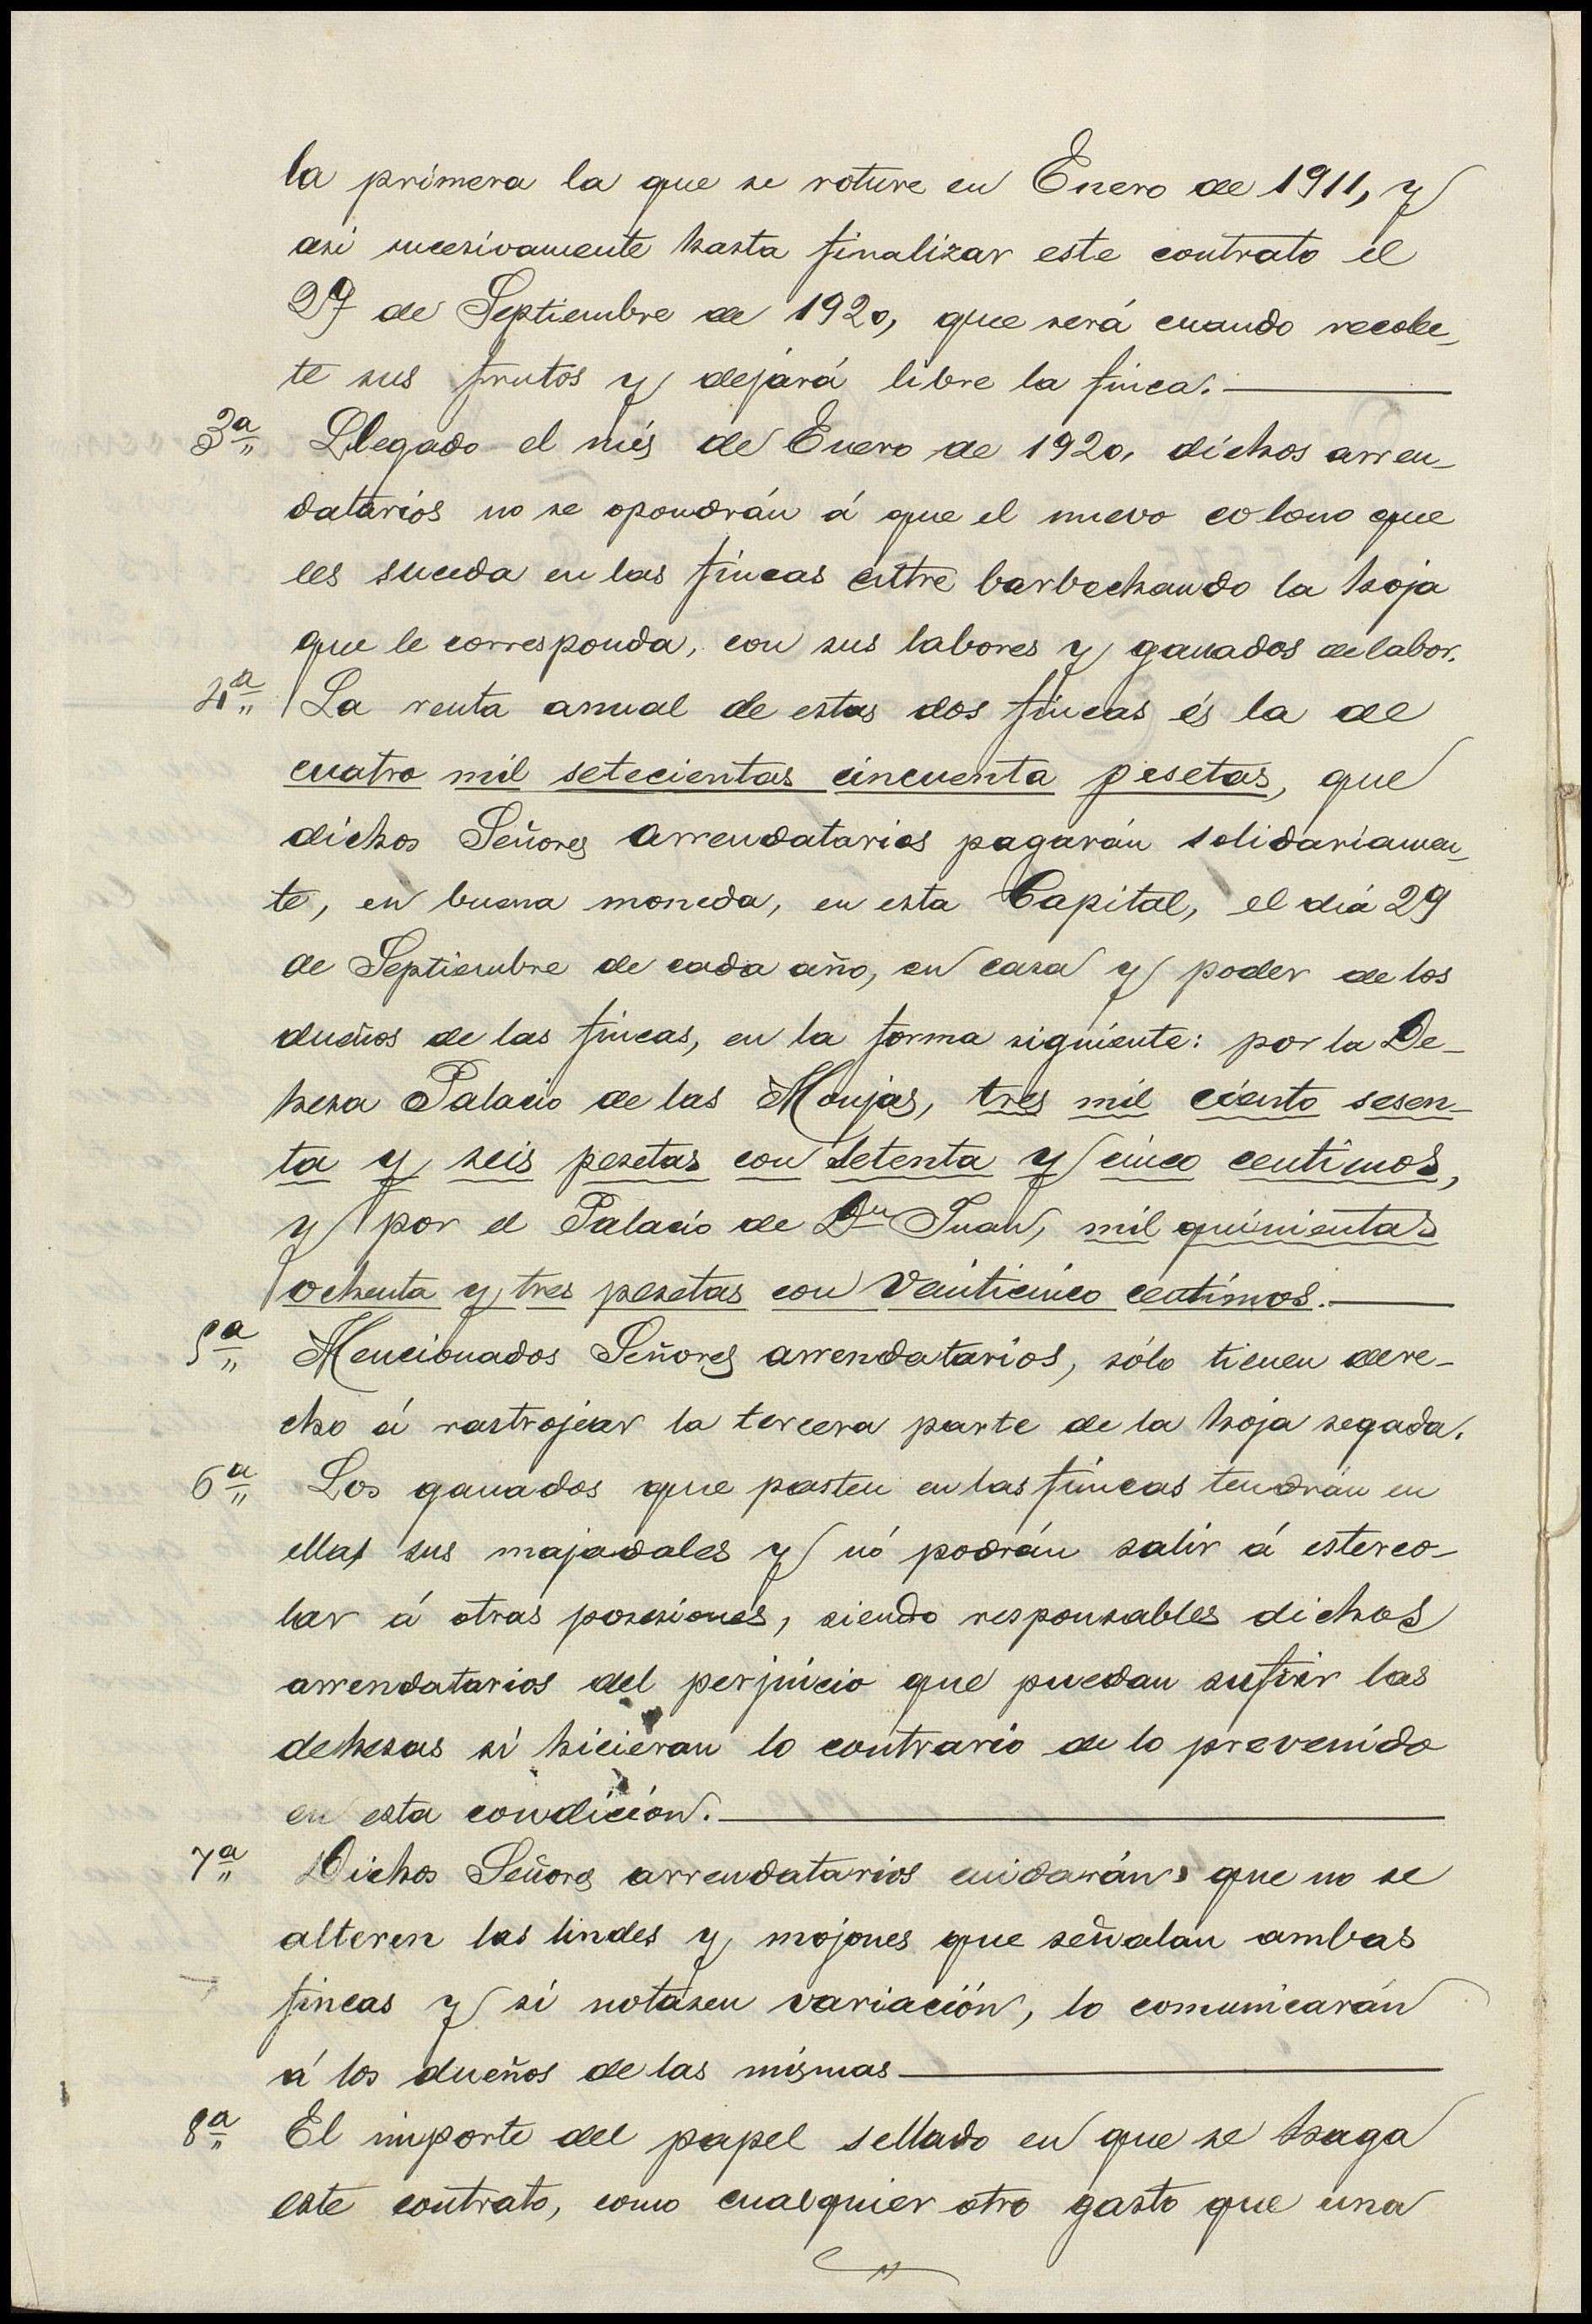 la primera la que se roture en Enero de 1911, y
asi sucesivamente hasta finalizar este contrato el
29 de Septiembre de 1920, que será cuando recolec-
te sus frutos y dejará libre la finca.
3ª Llegado el més de Enero de 1920, dichos arren-
datarios no se opondrán á que el nuevo colono que
les suceda en las fincas entre barbechando la hoja
que le corresponda, con sus labores y ganados de labor.
4ª La renta anual de estas dos fincas és la de
cuatro mil setecientas cincuenta pesetas, que
dichos Señores arrendatarios pagarán solidariamen-
te, en buena moneda, en esta Capital, el diá 29
de Septiembre de cada año, en casa y poder de los
dueños de las fincas, en la forma siguiente: por la De-
hesa Palacio de las Monjas, tres mil ciento sesen-
ta y seis pesetas con setenta y cinco centimos,
y por el Palacio de Dn Juan, mil quinientas
ochenta y tres pesetas con veinticinco centimos.
5ª Mencionados Señores arrendatarios, sólo tienen dere-
cho á rastrojear la tercera parte de la hoja segada.
6ª Los ganados que pasten en las fincas tendrán en
ellas sus majadales y nó podrán salir á esterco-
lar á otras posesiones, siendo responsables dichos
arrendatarios del perjuicio que puedan sufrir las
dehesas si hicieran lo contrario de lo prevenido
en esta condición.
7ª Dichos Señores arrendatarios cuidarán, que no se
alteren las lindes y mojones que señalan ambas
fincas y si notasen variación, lo comunicarán
á los dueños de las mismas
8ª El importe del papel sellado en que se haga
este contrato, como cualquier otro gasto que una